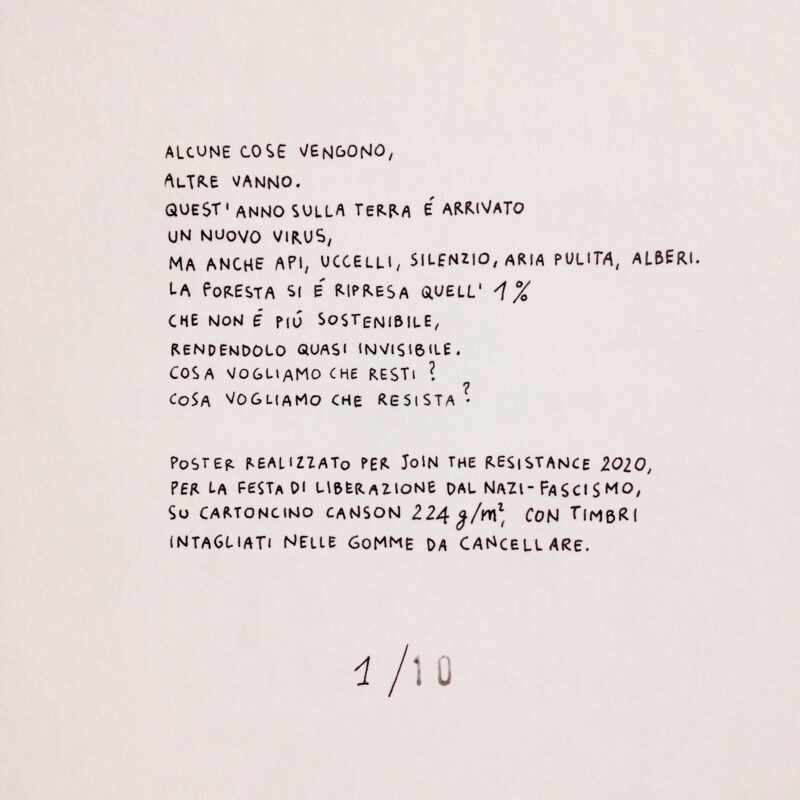 ALCUNE COSE VENGONO,
ALTRE VANNO.
QUEST'ANNO SULLA TERRA É ARRIVATO
UN NUOVO VIRUS,
MA ANCHE API, UCCELLI, SILENZIO, ARIA PULITA, ALBERI.
LA FORESTA SI É RIPRESA QUELL' 1%
CHE NON É PIÚ SOSTENIBILE,
RENDENDOLO QUASI INVISIBILE.
COSA VOGLIAMO CHE RESTI?
COSA VOGLIAMO CHE RESISTA?
POSTER REALIZZATO PER JOIN THE RESISTANCE 2020,
PER LA FESTA DI LIBERAZIONE DAL NAZI-FASCISMO,
SU CARTONCINO CANSON 224 g/m², CON TIMBRI
INTAGLIATI NELLE GOMME DA CANCELLARE.
1/10